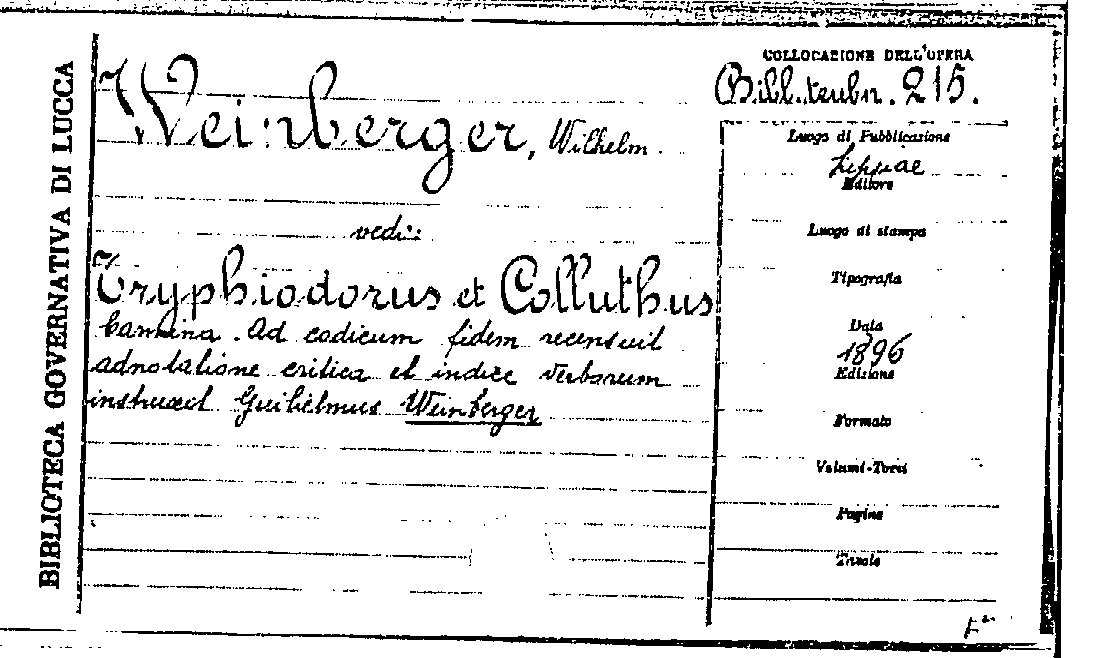 BIBLIOTECA GOVERNATIVA DI LUCCA
Weinberger, Wilhelm.
vedi:
Tryphiodorus et Colluthus
Carmina. Ad codicum fidem recensuit
adnotatione critica et indice verborum
instruxit Guilielmus Weinberger
COLLOCAZIONE DELL'OPERA
Bibl. teubn. 215.
Luogo di Pubblicazione
Lipsiae
Editore
Luogo di stampa
Tipografia
Data
1896
Edizione
Formato
Volumi-Tomi
Pagine
Tavole